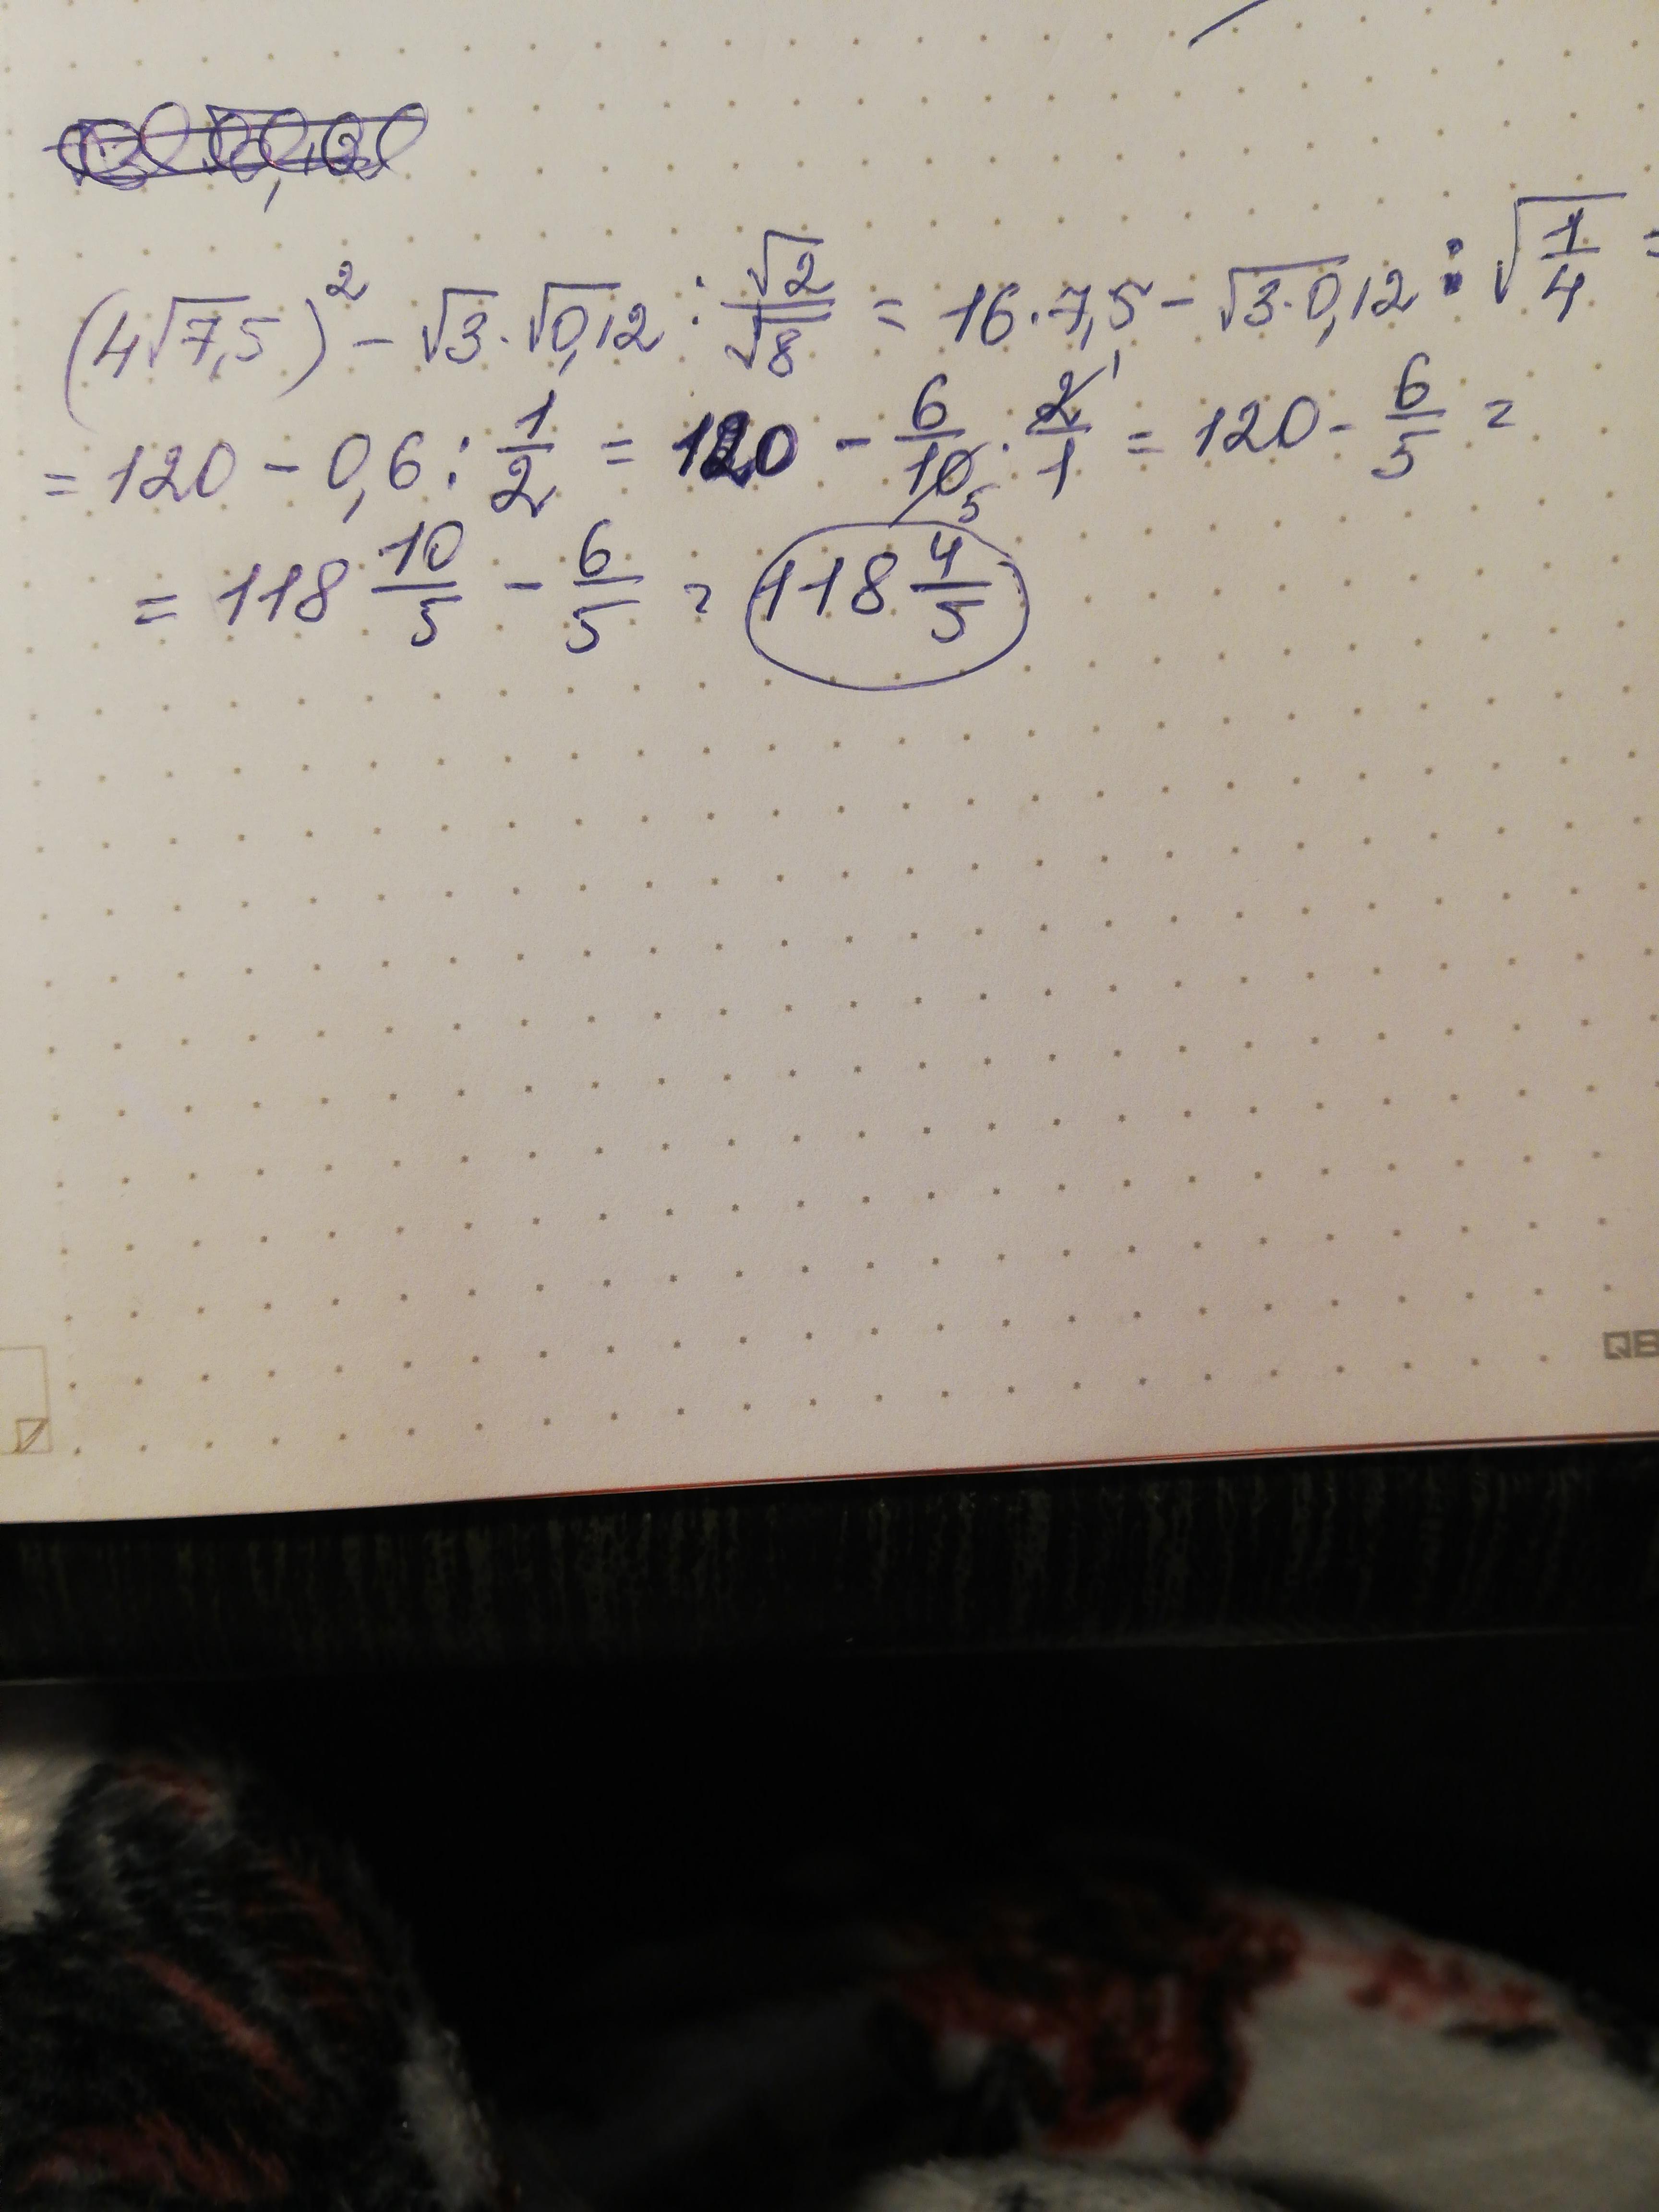 (4√7,5)² - √3 · √0,12 : √2/√8 = 16 · 7,5 - √3·0,12 : √1/4 =
= 120 - 0,6 : 1/2 = 120 - 6/10 5 · 2/1 1 = 120 - 6/5 =
= 118 10/5 - 6/5 = 118 4/5